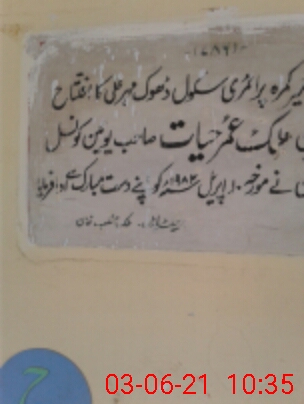 (۷۸۶)
کمرہ پرائمری سکول ڈھوک مہر علی کا افتتاح
ملک عمر حیات صاحب یونین کونسل
نے مورخہ ۱۰ اپریل ۱۹۸۲ء کو اپنے دست مبارک سے ادا فرمایا
خان
03-06-21 10:35